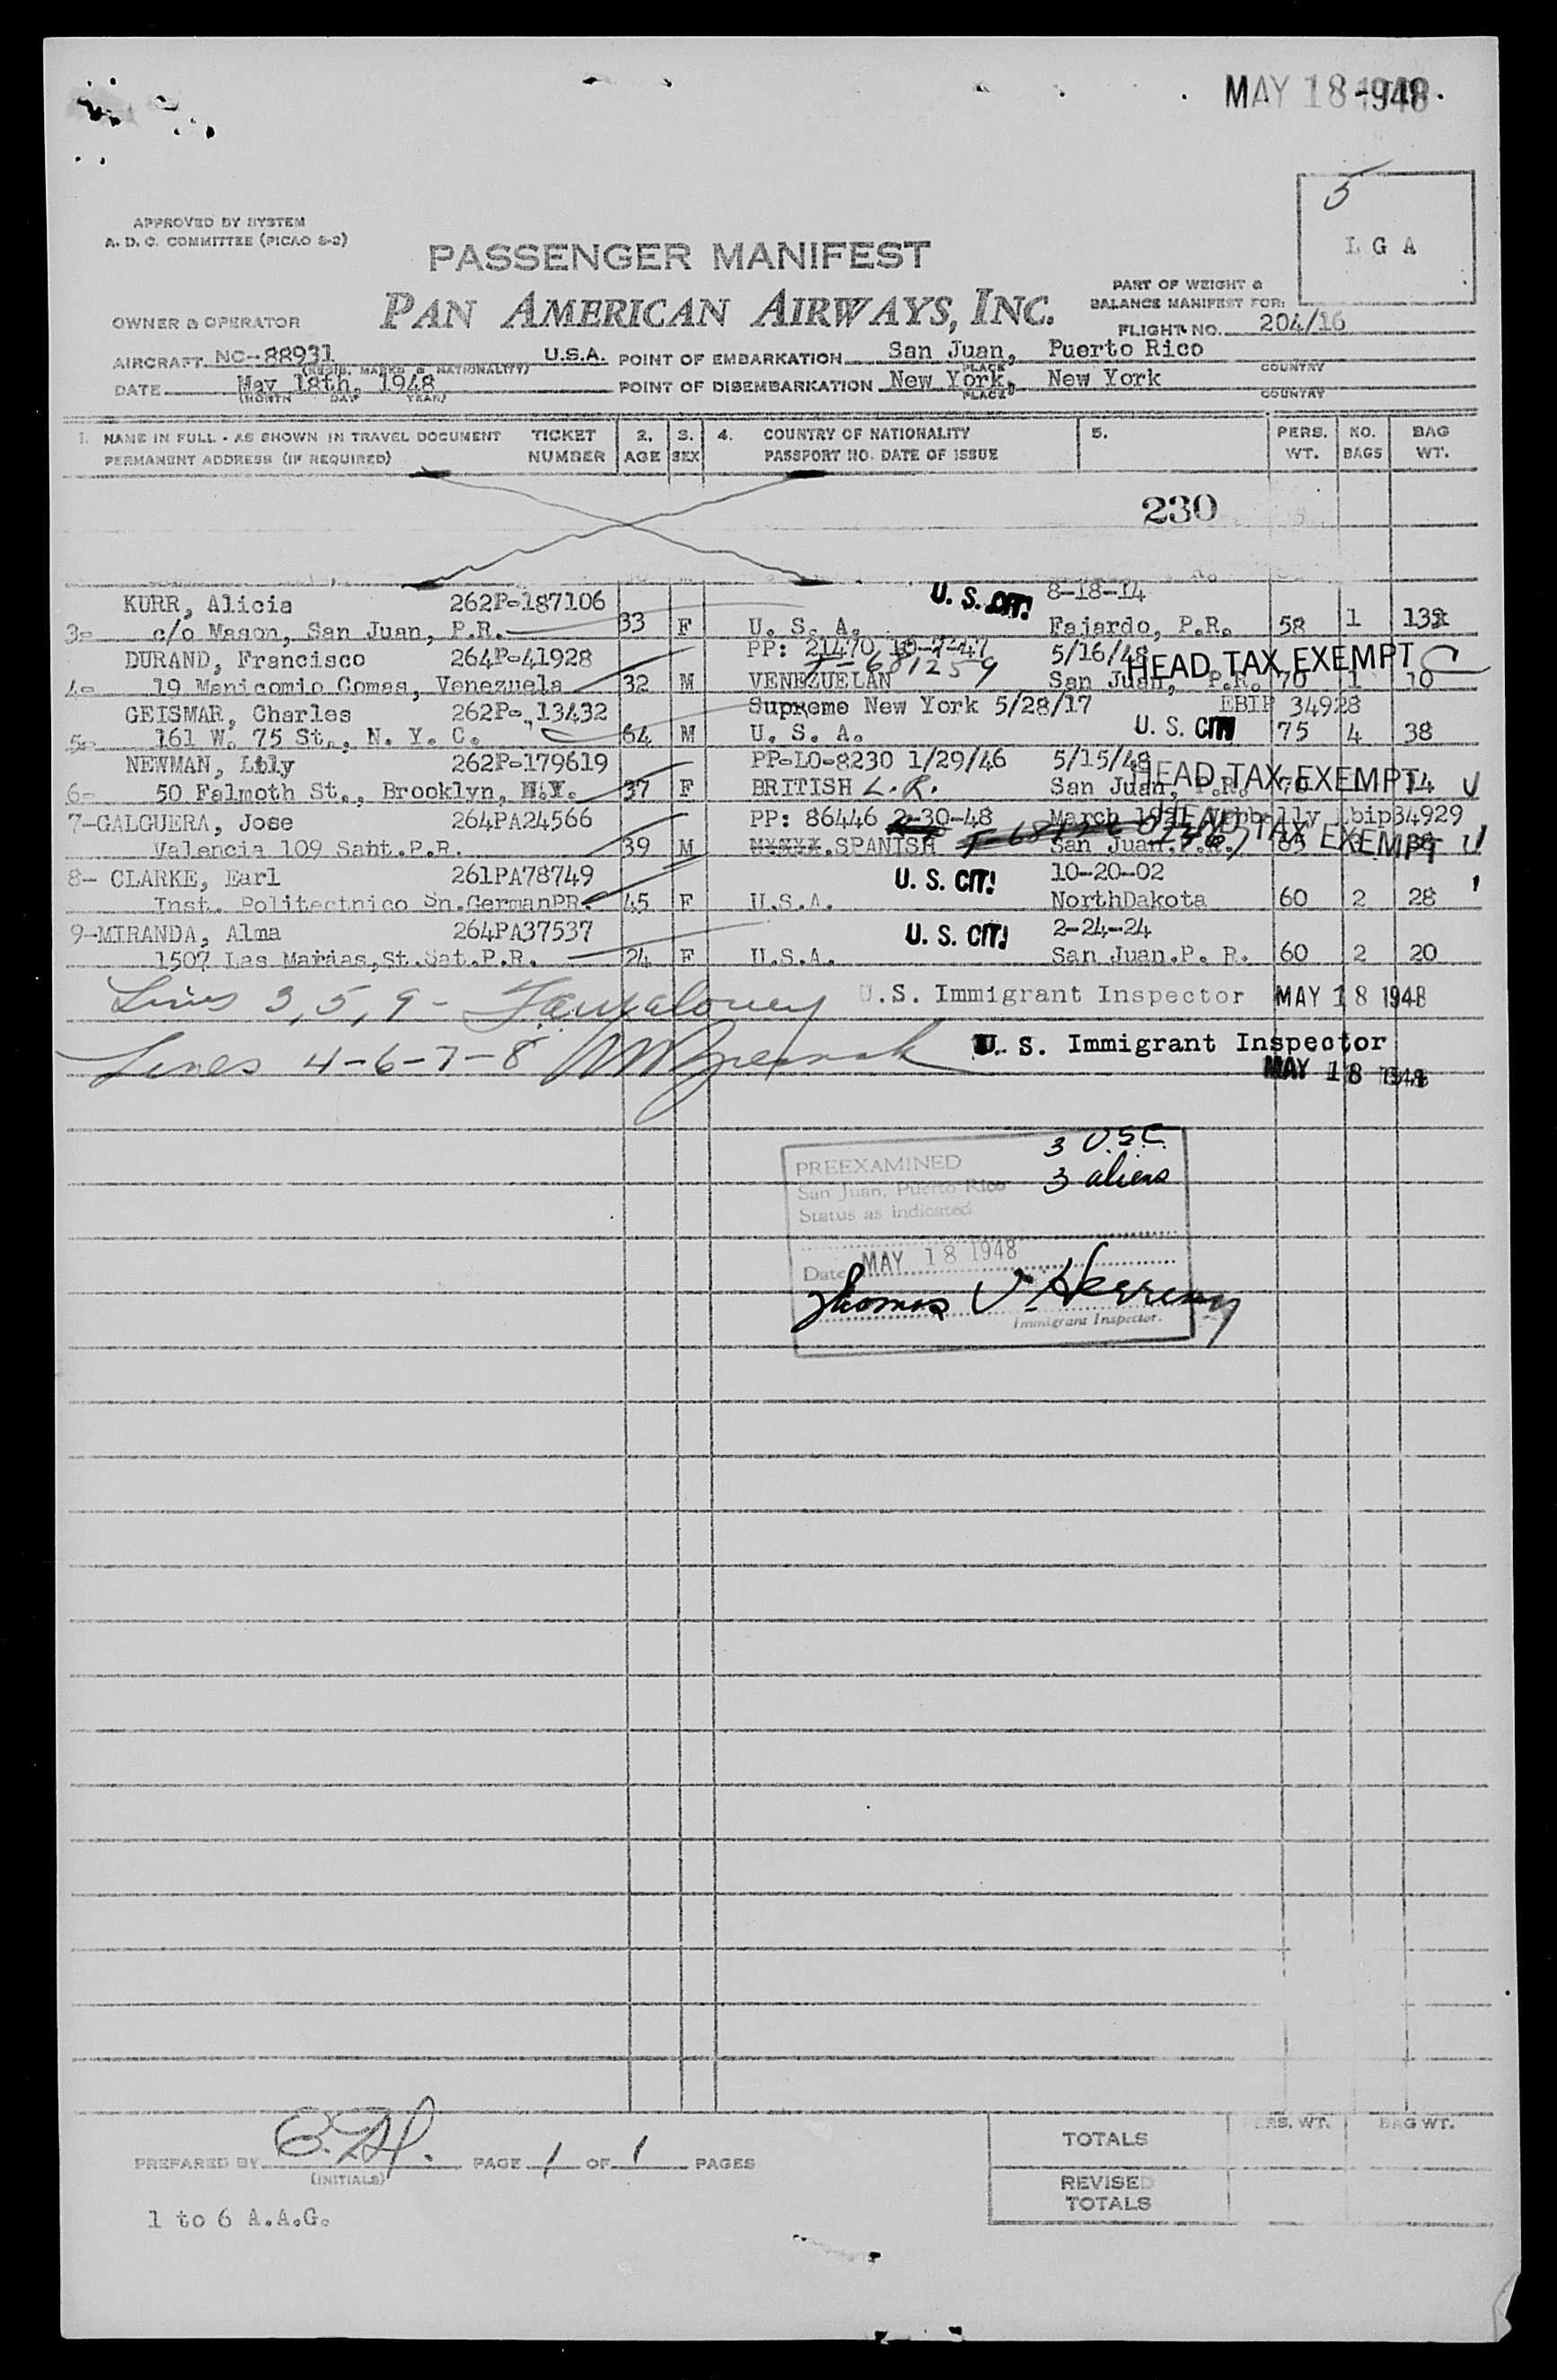 MAY 18 1948
5
L G A
APPROVED BY SYSTEM
A. D. C. COMMITTEE (PICAO S-2)
PASSENGER MANIFEST
PAN AMERICAN AIRWAYS, INC.
PART OF WEIGHT &
BALANCE MANIFEST FOR:
OWNER & OPERATOR
FLIGHT NO. 204/16
AIRCRAFT NC-88931 U.S.A. POINT OF EMBARKATION San Juan, Puerto Rico
(REGIS. MARKS & NATIONALITY) PLACE COUNTRY
DATE May 18th, 1948 POINT OF DISEMBARKATION New York, New York
(MONTH DAY YEAR) PLACE COUNTRY
1. NAME IN FULL - AS SHOWN IN TRAVEL DOCUMENT TICKET 2. 3. 4. COUNTRY OF NATIONALITY 5. PERS. NO. BAG
PERMANENT ADDRESS (IF REQUIRED) NUMBER AGE SEX PASSPORT NO. DATE OF ISSUE WT. BAGS WT.
230
KURR, Alicia 262P-187106 U. S. CIT! 8-18-14
3- c/o Mason, San Juan, P.R. 33 F U. S. A. Fajardo, P.R. 58 1
DURAND, Francisco 264P-41928 PP: 21470 5/16/48 HEAD TAX EXEMPT
4- 19 Manicomio Comas, Venezuela 32 M VENEZUELAN San Juan, P.R. 70 1 10
GEISMAR, Charles 262P-13432 Supreme New York 5/28/17 EBIP 34928
5- 161 W. 75 St., N. Y. C. 64 M U. S. A. U. S. CIT! 75 4 38
NEWMAN, Lily 262P-179619 PP-LO-8230 1/29/46 5/15/48 HEAD TAX EXEMPT
6- 50 Falmoth St., Brooklyn, N.Y. 37 F BRITISH L. R. San Juan, P.R. 14
7-GALGUERA, Jose 264PA24566 PP: 86446 2-30-48 March 34929 HEAD TAX EXEMPT
Valencia 109 Sant.P.R. 39 M SPANISH San Juan.P.R.
8- CLARKE, Earl 261PA78749 U. S. CIT! 10-20-02
Inst. Politectnico Sn.GermanPR. 45 F U.S.A. NorthDakota 60 2 28
9-MIRANDA, Alma 264PA37537 U. S. CIT! 2-24-24
1507 Las Marias,St.Sat.P.R. 24 F U.S.A. San Juan.P. R. 60 2 20
Lines 3, 5, 9 - U.S. Immigrant Inspector MAY 18 1948
Lines 4-6-7-8 U. S. Immigrant Inspector
MAY 18 1948
3 USC
PREEXAMINED
3 aliens
San Juan, Puerto Rico
Status as indicated
Date MAY 18 1948
Thomas
Immigrant Inspector.
TOTALS PERS. WT. BAG WT.
PREPARED BY PAGE 1 OF 1 PAGES
(INITIALS)
REVISED
TOTALS
1 to 6 A.A.G.